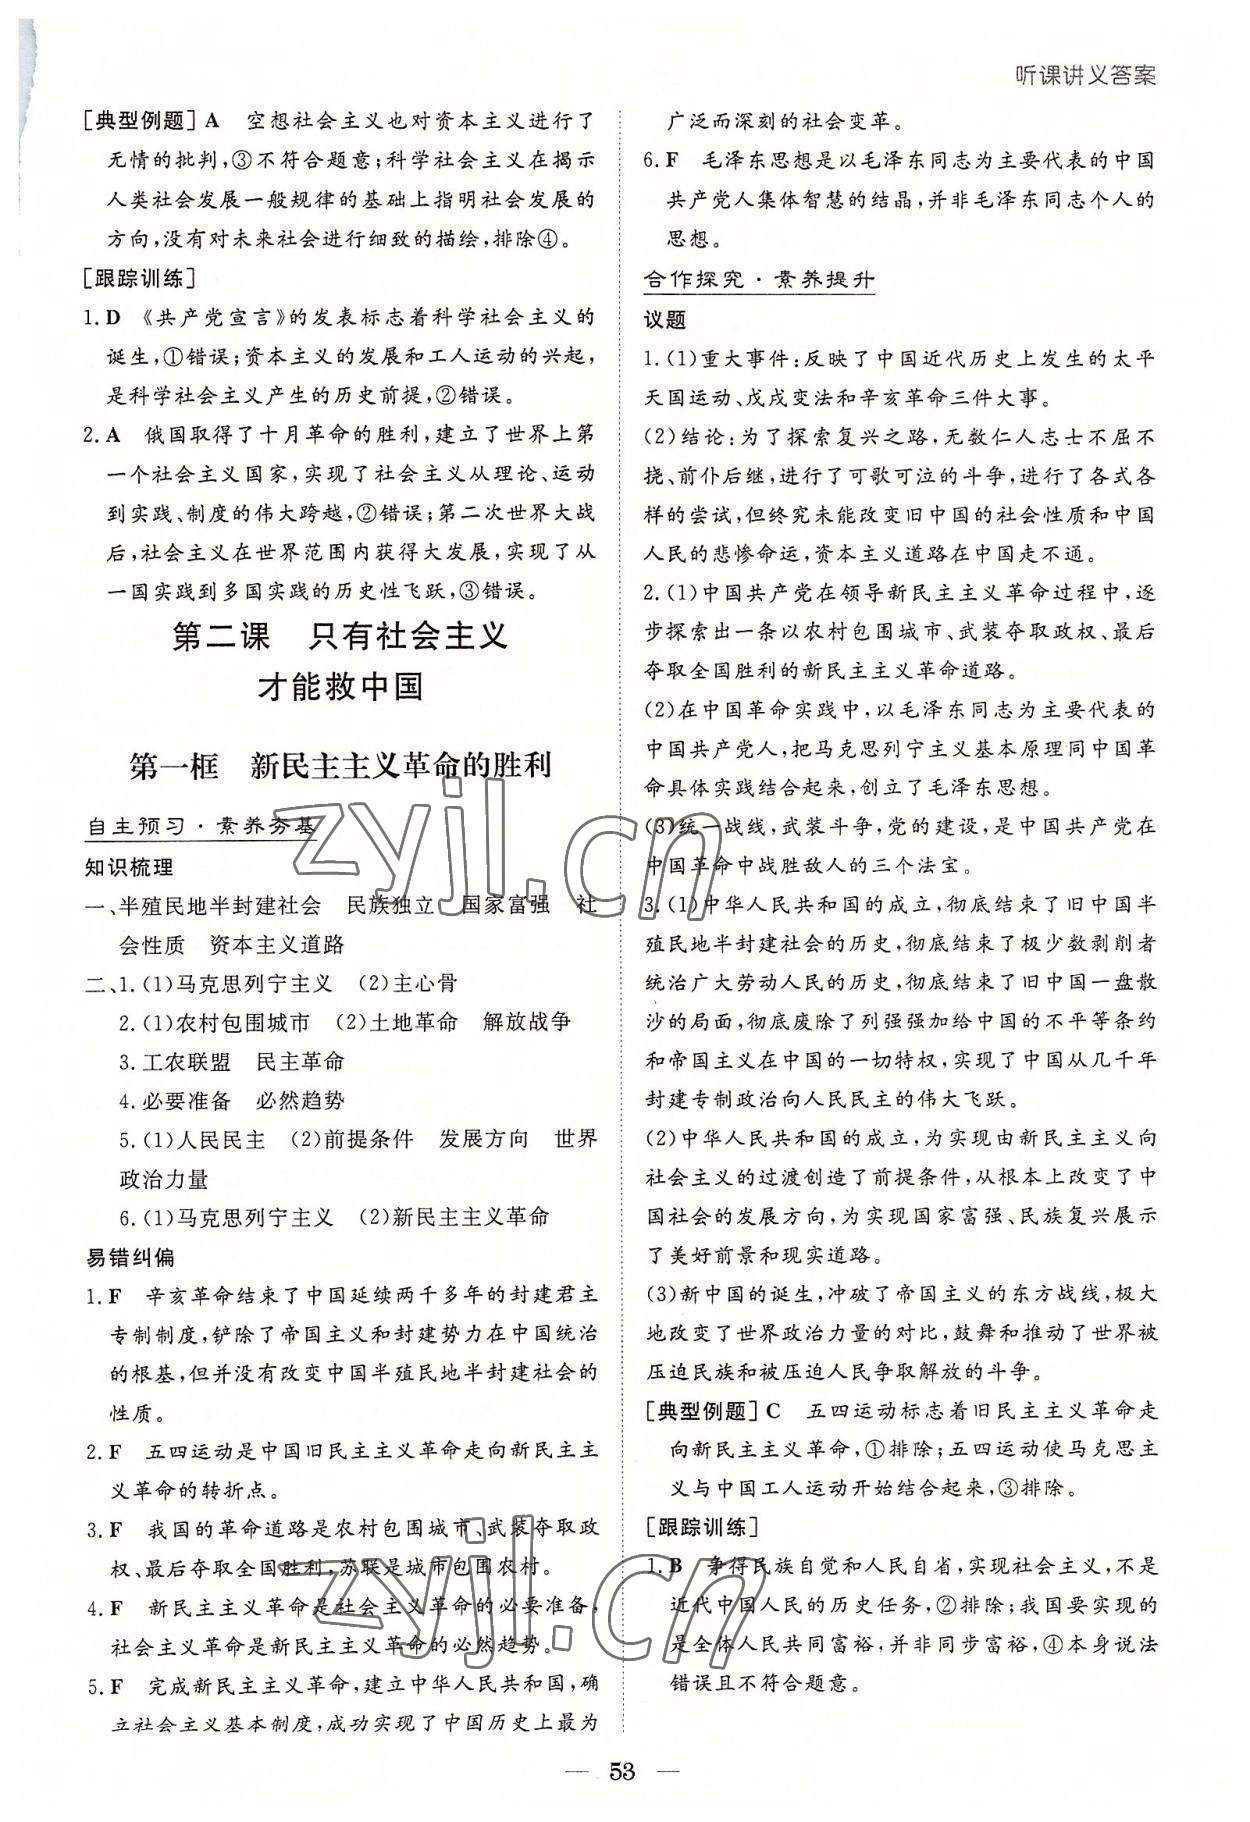 听课讲义答案
[典型例题] A　空想社会主义也对资本主义进行了
无情的批判,③不符合题意;科学社会主义在揭示
人类社会发展一般规律的基础上指明社会发展的
方向,没有对未来社会进行细致的描绘,排除④。
[跟踪训练]
1. D　《共产党宣言》的发表标志着科学社会主义的
诞生,①错误;资本主义的发展和工人运动的兴起,
是科学社会主义产生的历史前提,②错误。
2. A　俄国取得了十月革命的胜利,建立了世界上第
一个社会主义国家,实现了社会主义从理论、运动
到实践、制度的伟大跨越,②错误;第二次世界大战
后,社会主义在世界范围内获得大发展,实现了从
一国实践到多国实践的历史性飞跃,③错误。
第二课　只有社会主义
才能救中国
第一框　新民主主义革命的胜利
自主预习·素养夯基
知识梳理
一、半殖民地半封建社会　民族独立　国家富强　社
会性质　资本主义道路
二、1. (1)马克思列宁主义　(2)主心骨
2. (1)农村包围城市　(2)土地革命　解放战争
3. 工农联盟　民主革命
4. 必要准备　必然趋势
5. (1)人民民主　(2)前提条件　发展方向　世界
政治力量
6. (1)马克思列宁主义　(2)新民主主义革命
易错纠偏
1. F　辛亥革命结束了中国延续两千多年的封建君主
专制制度,铲除了帝国主义和封建势力在中国统治
的根基,但并没有改变中国半殖民地半封建社会的
性质。
2. F　五四运动是中国旧民主主义革命走向新民主主
义革命的转折点。
3. F　我国的革命道路是农村包围城市、武装夺取政
权、最后夺取全国胜利,苏联是城市包围农村。
4. F　新民主主义革命是社会主义革命的必要准备,
社会主义革命是新民主主义革命的必然趋势。
5. F　完成新民主主义革命,建立中华人民共和国,确
立社会主义基本制度,成功实现了中国历史上最为
广泛而深刻的社会变革。
6. F　毛泽东思想是以毛泽东同志为主要代表的中国
共产党人集体智慧的结晶,并非毛泽东同志个人的
思想。
合作探究·素养提升
议题
1. (1)重大事件:反映了中国近代历史上发生的太平
天国运动、戊戌变法和辛亥革命三件大事。
(2)结论:为了探索复兴之路,无数仁人志士不屈不
挠、前仆后继,进行了可歌可泣的斗争,进行了各式各
样的尝试,但终究未能改变旧中国的社会性质和中国
人民的悲惨命运,资本主义道路在中国走不通。
2. (1)中国共产党在领导新民主主义革命过程中,逐
步探索出一条以农村包围城市、武装夺取政权、最后
夺取全国胜利的新民主主义革命道路。
(2)在中国革命实践中,以毛泽东同志为主要代表的
中国共产党人,把马克思列宁主义基本原理同中国革
命具体实践结合起来,创立了毛泽东思想。
(3)统一战线,武装斗争,党的建设,是中国共产党在
中国革命中战胜敌人的三个法宝。
3. (1)中华人民共和国的成立,彻底结束了旧中国半
殖民地半封建社会的历史,彻底结束了极少数剥削者
统治广大劳动人民的历史,彻底结束了旧中国一盘散
沙的局面,彻底废除了列强强加给中国的不平等条约
和帝国主义在中国的一切特权,实现了中国从几千年
封建专制政治向人民民主的伟大飞跃。
(2)中华人民共和国的成立,为实现由新民主主义向
社会主义的过渡创造了前提条件,从根本上改变了中
国社会的发展方向,为实现国家富强、民族复兴展示
了美好前景和现实道路。
(3)新中国的诞生,冲破了帝国主义的东方战线,极大
地改变了世界政治力量的对比,鼓舞和推动了世界被
压迫民族和被压迫人民争取解放的斗争。
[典型例题] C　五四运动标志着旧民主主义革命走
向新民主主义革命,①排除;五四运动使马克思主
义与中国工人运动开始结合起来,③排除。
[跟踪训练]
1. B　争得民族自觉和人民自省,实现社会主义,不是
近代中国人民的历史任务,②排除;我国要实现的
是全体人民共同富裕,并非同步富裕,④本身说法
错误且不符合题意。
— 53 —
zyjl.cn
zyjl.cn